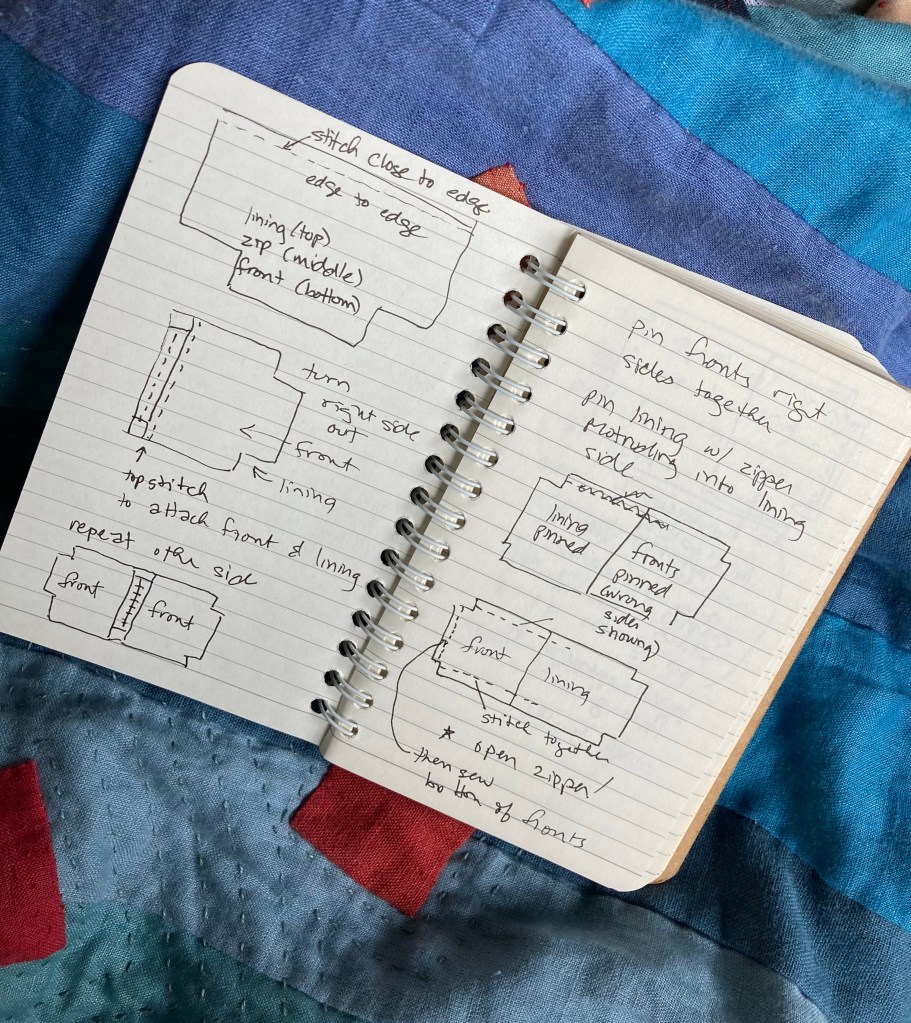 stitch close to edge
edge to edge
lining (top)
zip (middle)
front (bottom)
turn
right side
out
front
lining
topstitch
to attach front & lining
repeat other side
front
front
pin fronts right
sides together
pin lining w/ zipper
protruding into lining
side
lining
pinned
fronts
pinned
(wrong
sides
showing)
front
lining
stitch together
* open zipper/
then sew
bottom of fronts